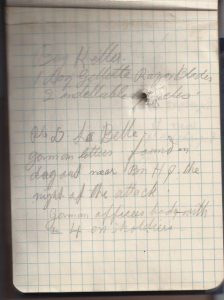 Big Kettle
1 dog Gillette Razor Blades
2 indellable
Pte D. La Belle
german letters found in
dug out near Bn H Q the
night of the attack.
German officers body with
4 on sholders